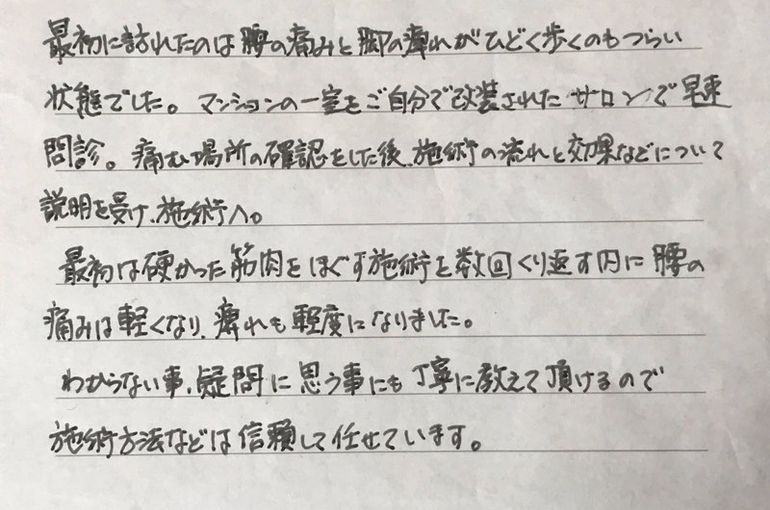 最初に訪れたのは腰の痛みと脚の痺れがひどく歩くのもつらい
状態でした。マンションの一室をご自分で改装されたサロンで早速
問診。痛む場所の確認をした後、施術の流れと効果などについて
説明を受け、施術へ。
最初は硬かった筋肉をほぐす施術を数回くり返す内に腰の
痛みは軽くなり、痺れも軽度になりました。
わからない事、疑問に思う事にも丁寧に教えて頂けるので
施術方法などは信頼して任せています。